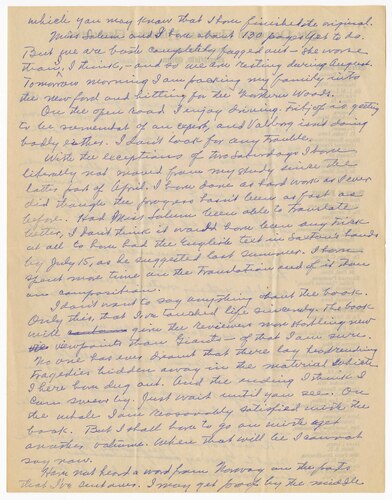 which you may know that I have finished the original.
Miss Solum and I have about 130 pages yet to do.
But we are both completely fagged out - She worse
than I, I think, - and so we are resting during August.
Tomorrow morning I am packing my family into
the new ford and hitting for the Northern Woods.
On the open road I enjoy driving. Truly, I'm getting
to be somewhat of an expert, and Valborg isn't doing
badly either. I don't look for any trouble.
With the exceptions of two Saturdays I have
literally not moved from my study since the
latter part of April. I have done as hard work as I ever
did though the progress hasn't been as fast as
before. Had Miss Solum been able to translate
better, I don't think it would have been any trick
at all to have had the English text in Saxton's hands
by July 15, as he suggested last summer. I have
spent more time on the translation and if it than
on composition.
I don't want to say anything about the book.
Only this, that I've touched life sincerely. The book
will give the reviewers more startling new
viewpoints than Giants - of that I am sure.
No one has ever dreamt that there lay heartrending
tragedies hidden away in the material which
I have here dug out. And the ending I think I
can swear by. Just wait until you see. On
the whole I am reasonably satisfied with the
book. But I shall have to go on with yet
another volume. When that will be I cannot
say now.
Have not heard a word from Norway on the parts
that I've sent over. I may get proof by the middle